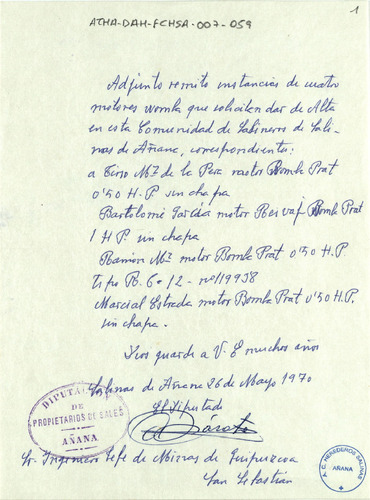 ATHA-DAH-FCHSA-007-059
1
Adjunto remito instancias de cuatro
motores bomba que solicitan dar de Alta
en esta Comunidad de Salineros de Sali-
nas de Añana, correspondientes:
a Tirso Mª de la Pera motor Bomba Prat
0'50 H.P sin chapa
Bartolomé García motor Bomba Prat
1 H P. sin chapa
Ramon Mª motor Bomba Prat 0'50 H.P
tipo B. 6-12 - nº 119938
Marcial Estrada motor Bomba Prat 0'50 H.P.
sin chapa.
Dios guarde a V. E muchos años
Salinas de Añana 26 de Mayo 1970
El Diputado
DIPUTACION
DE
PROPIETARIOS DE SALES
AÑANA
Sr. Ingeniero Jefe de Minas de Guipuzcoa
San Sebastian
A. C. HEREDEROS SALINAS
AÑANA